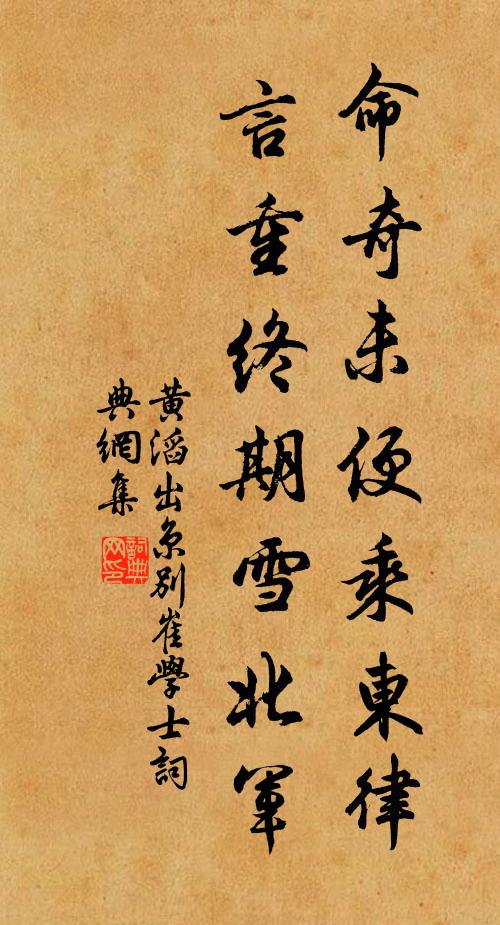 命奇未便乘東律
言重終期雪北軍
黃滔出京別崔學士詞
典網集
詞典網印